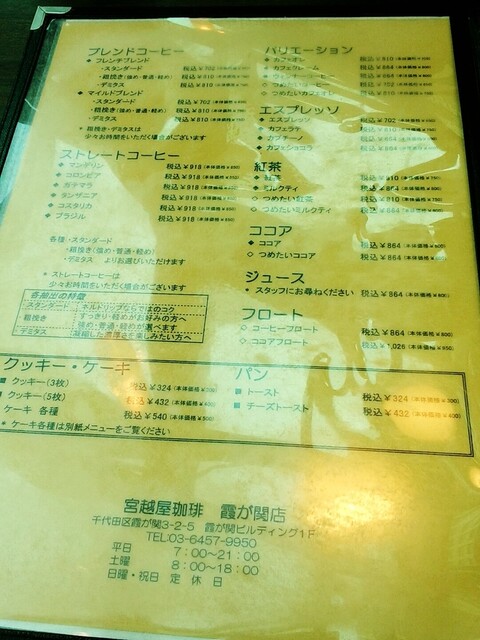 ブレンドコーヒー
◆ フレンチブレンド
・スタンダード 税込¥702
・粗挽き(強め・普通・軽め) 税込¥810
・デミタス 税込¥810
◆ マイルドブレンド
・スタンダード 税込¥702
・粗挽き(強め・普通・軽め) 税込¥810
・デミタス 税込¥810
* 粗挽き・デミタスは
少々お時間をいただく場合がございます
ストレートコーヒー
◆ マンデリン 税込¥918
◆ コロンビア 税込¥918
◆ ガテマラ 税込¥918
◆ タンザニア 税込¥918
◆ コスタリカ 税込¥918
◆ ブラジル 税込¥918
各種・スタンダード
・粗挽き(強め・普通・軽め)
・デミタス よりお選びいただけます
* ストレートコーヒーは
少々お時間をいただく場合がございます
各抽出の特徴
スタンダード ネルドリップならではのコク
粗挽き すっきり・軽めがお好みの方へ
強め・普通・軽めが選べます
デミタス 凝縮した濃厚さを楽しみたい方へ
バリエーション
◆ カフェ・オ・レ 税込¥810
◆ カフェクレーム 税込¥864
◆ ウィンナーコーヒー 税込¥864
◇ つめたいコーヒー
◇ つめたいカフェオレ 税込¥810
エスプレッソ
◆ エスプレッソ 税込¥702
◆ カフェラテ 税込¥810
◆ カプチーノ 税込¥864
◆ カフェショコラ 税込¥864
紅茶
◆ 紅茶
◆ ミルクティ 税込¥864
◇ つめたい紅茶 税込¥810
◇ つめたいミルクティ 税込¥864
ココア
◆ ココア 税込¥864 (本体価格¥800)
◇ つめたいココア
ジュース
* スタッフにお尋ねください 税込¥864 (本体価格¥800)
フロート
◇ コーヒーフロート 税込¥864 (本体価格¥800)
◇ ココアフロート 税込¥1,026 (本体価格¥950)
クッキー・ケーキ
■ クッキー(3枚) 税込¥324 (本体価格¥300)
■ クッキー(5枚) 税込¥432 (本体価格¥400)
ケーキ 各種 税込¥540 (本体価格¥500)
* ケーキ各種は別紙メニューをご覧ください
パン
■ トースト 税込¥324 (本体価格¥300)
■ チーズトースト 税込¥432 (本体価格¥400)
宮越屋珈琲 霞が関店
千代田区霞が関3-2-5 霞が関ビルディング1F
TEL:03-6457-9950
平日 7:00~21:00
土曜 8:00~18:00
日曜・祝日 定休日